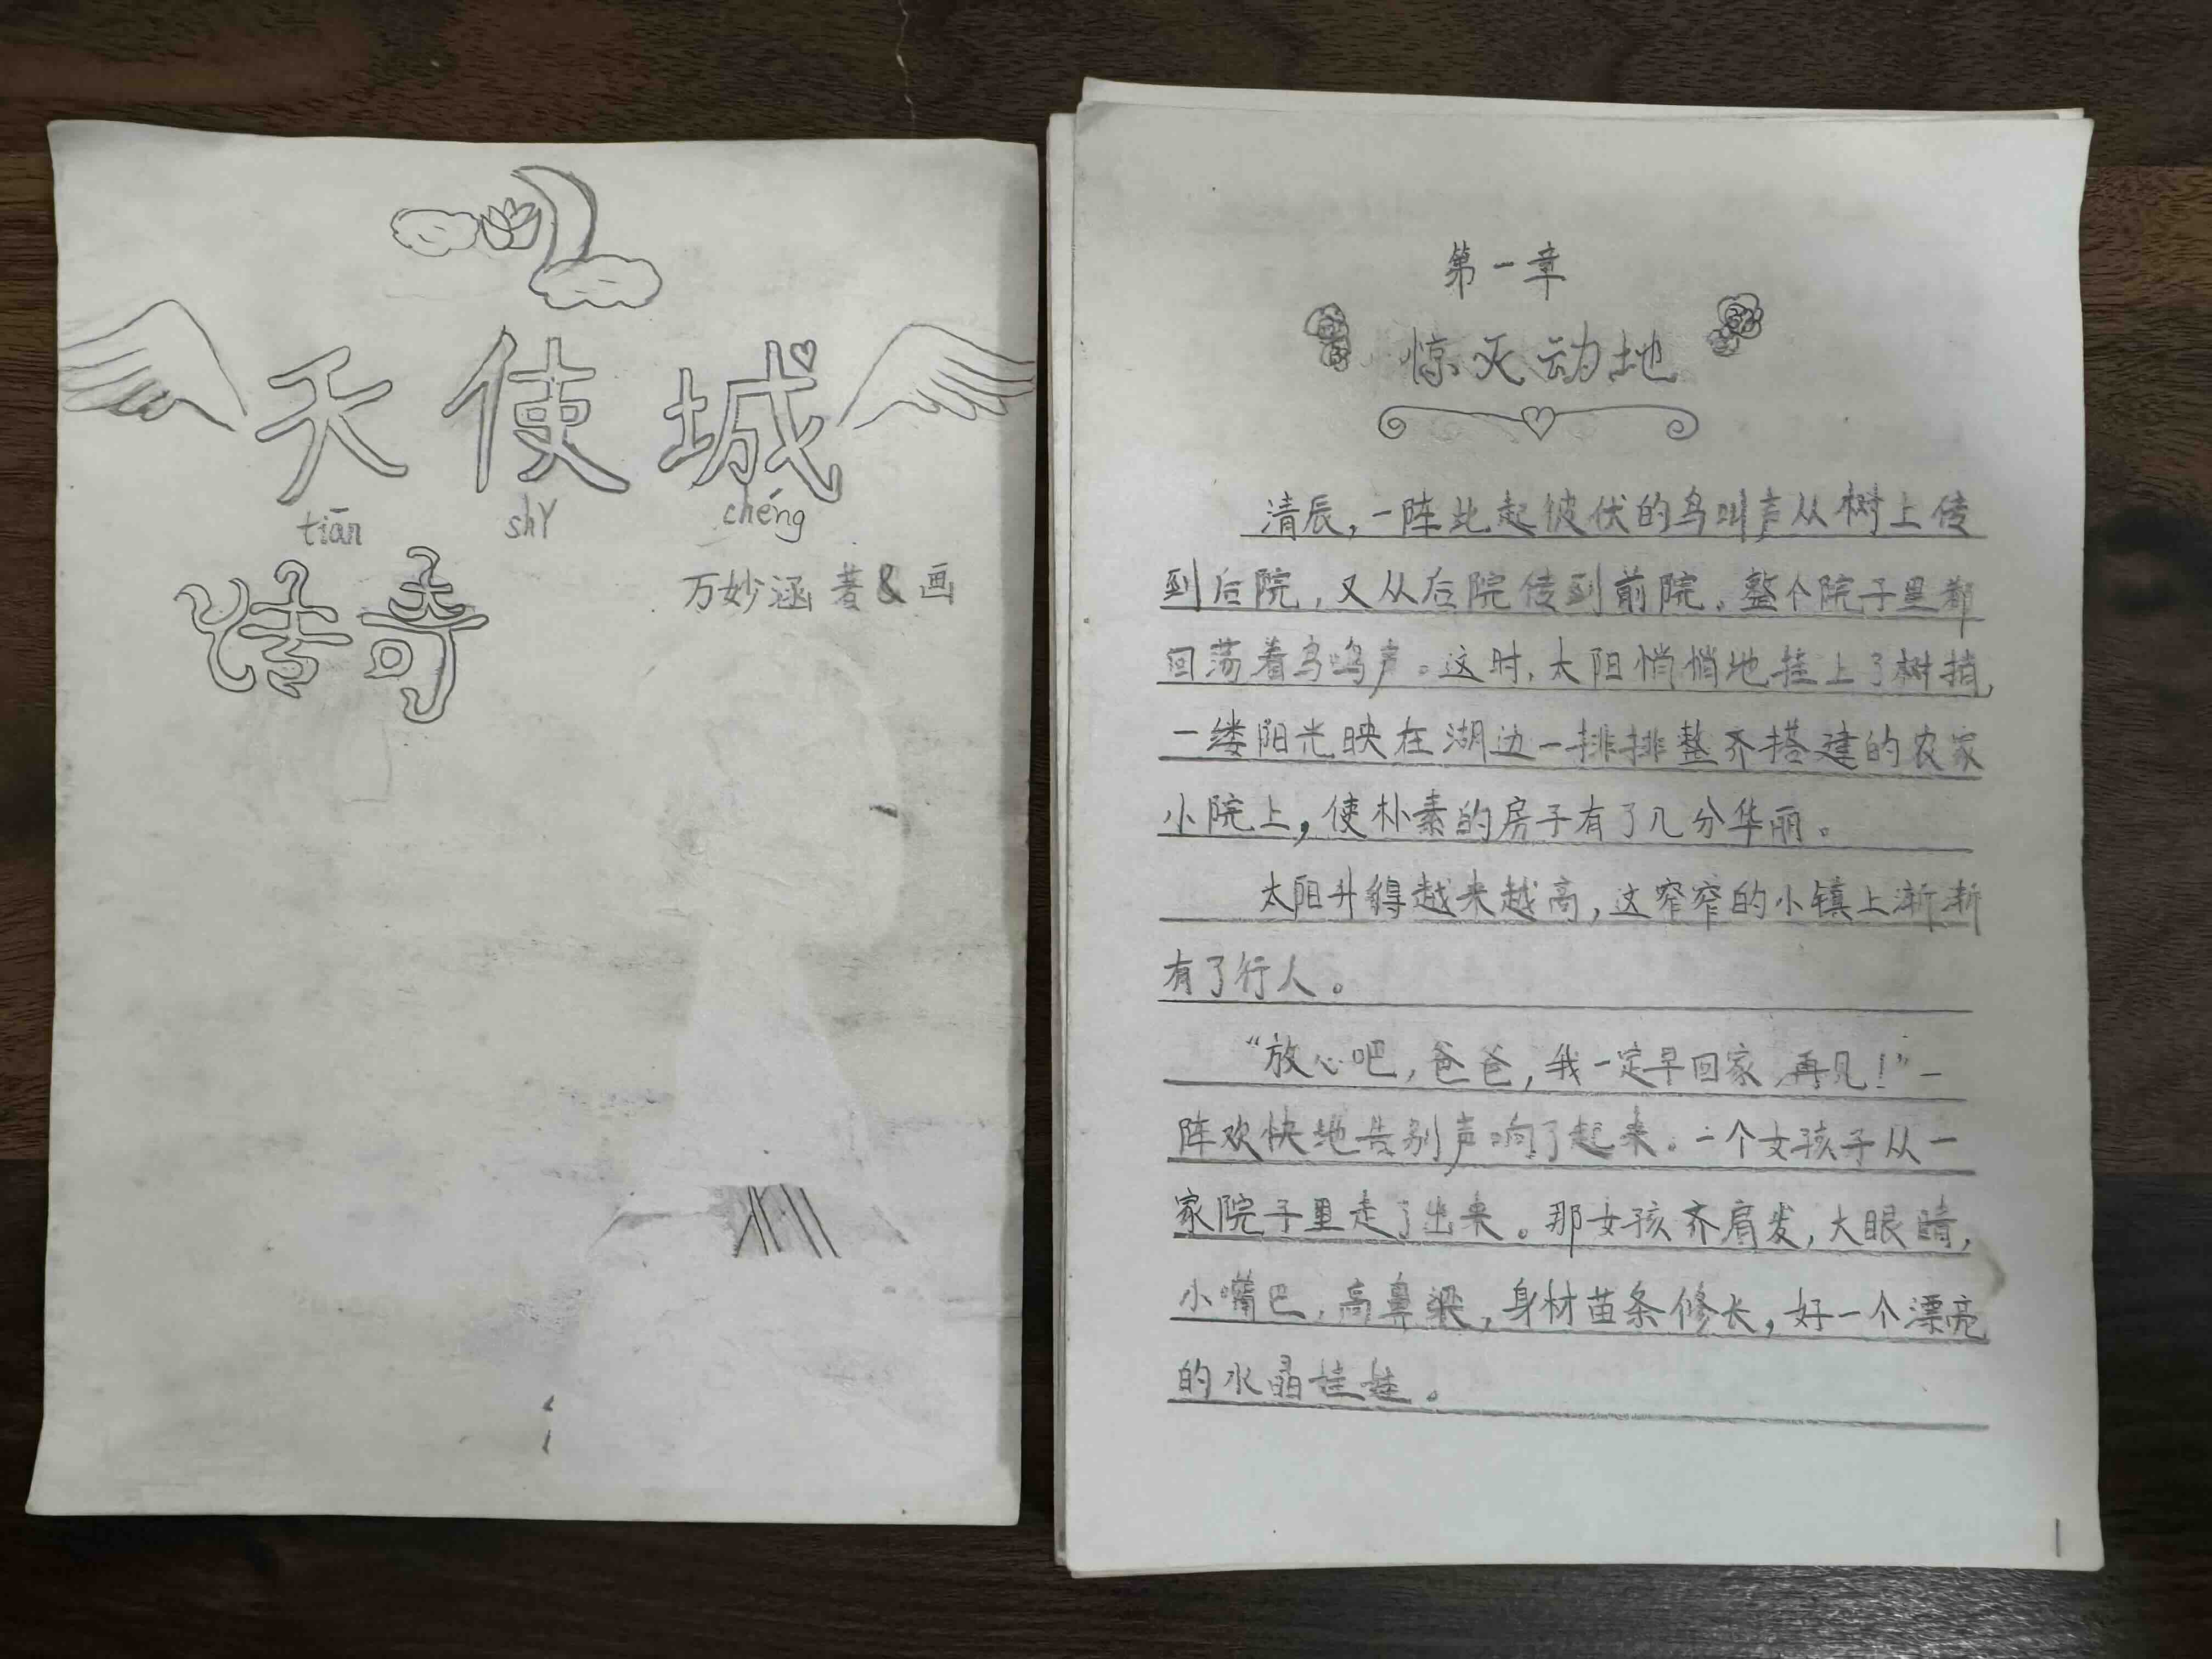 天使城
tiān shǐ chéng
传奇
万妙涵 著&画
第一章
惊天动地
清辰,一阵此起彼伏的鸟叫声从树上传
到后院,又从后院传到前院。整个院子里都
回荡着鸟鸣声。这时,太阳悄悄地挂上了树捎,
一缕阳光映在湖边一排排整齐搭建的农家
小院上,使朴素的房子有了几分华丽。
太阳升得越来越高,这窄窄的小镇上渐渐
有了行人。
“放心吧,爸爸,我一定早回家,再见!”一
阵欢快地告别声响了起来。一个女孩子从一
家院子里走了出来。那女孩齐肩发,大眼睛,
小嘴巴,高鼻梁,身材苗条修长,好一个漂亮
的水晶娃娃。
1